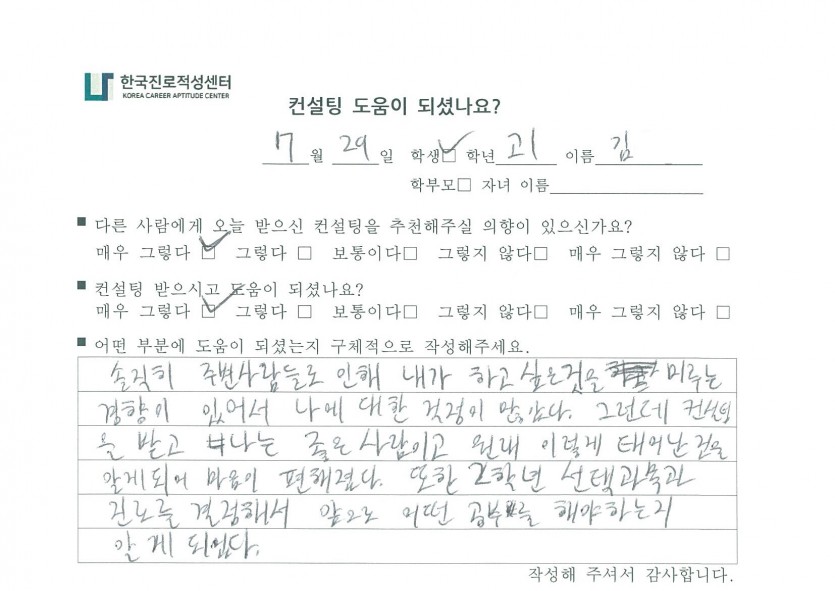 한국진로적성센터
KOREA CAREER APTITUDE CENTER
컨설팅 도움이 되셨나요?
7월 29일 학생☑ 학년 고1 이름 김
학부모□ 자녀 이름
■ 다른 사람에게 오늘 받으신 컨설팅을 추천해주실 의향이 있으신가요?
매우 그렇다 ☑ 그렇다 □ 보통이다□ 그렇지 않다□ 매우 그렇지 않다 □
■ 컨설팅 받으시고 도움이 되셨나요?
매우 그렇다 ☑ 그렇다 □ 보통이다□ 그렇지 않다□ 매우 그렇지 않다 □
■ 어떤 부분에 도움이 되셨는지 구체적으로 작성해주세요.
솔직히 주변사람들로 인해 내가 하고 싶은것을 미루는
경향이 있어서 나에 대한 걱정이 많았다. 그런데 컨설팅
을 받고 나는 좋은 사람이고 원래 이렇게 태어난 것을
알게되어 마음이 편해졌다. 또한 2학년 선택과목과
진로를 결정해서 앞으로 어떤 공부를 해야하는지
알게 되었다.
작성해 주셔서 감사합니다.